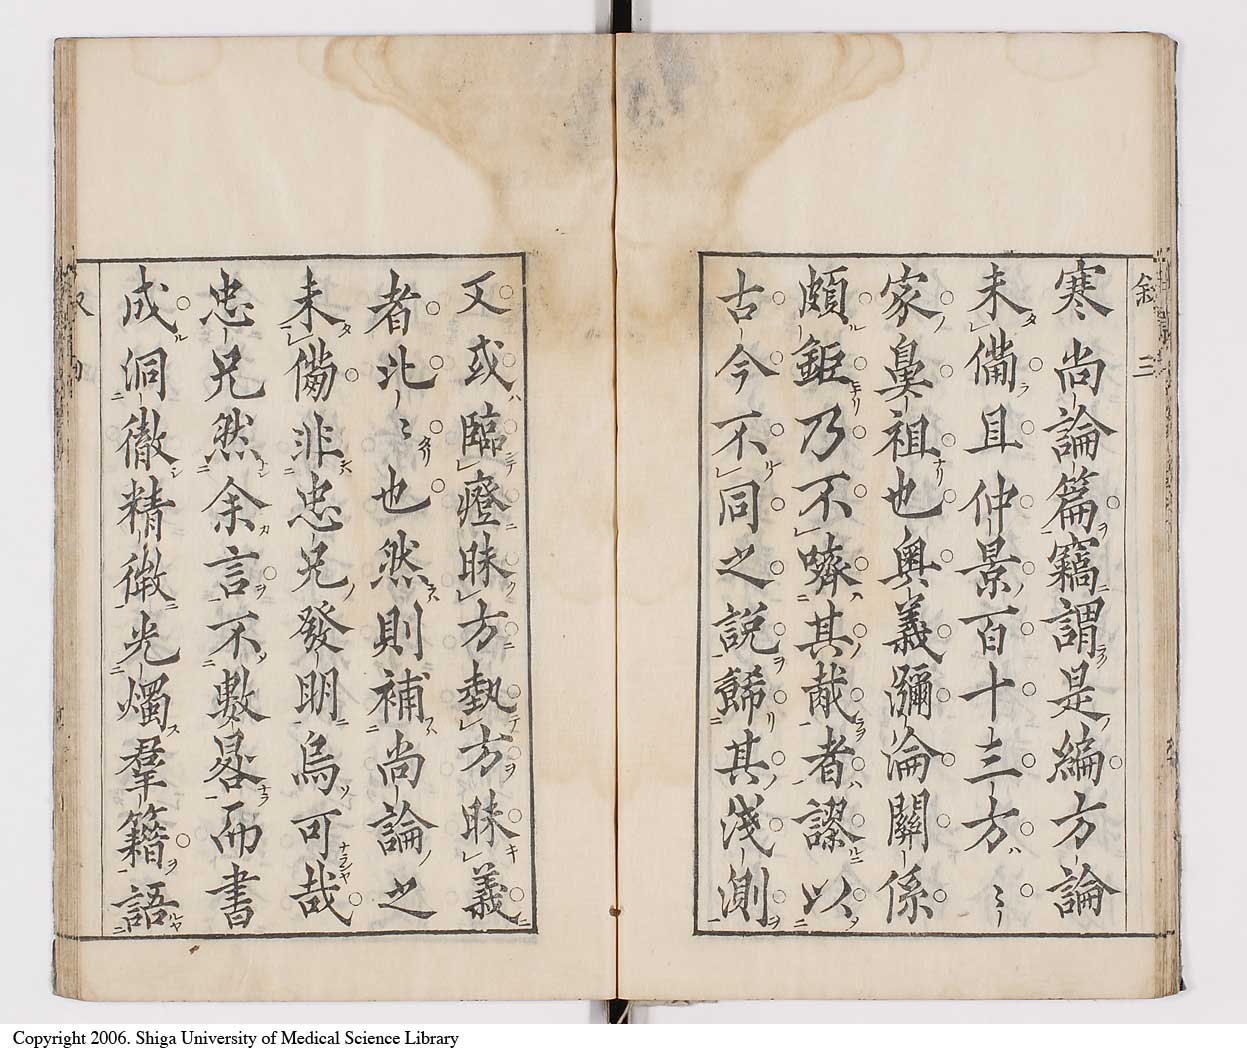 敍 三
寒尚論篇竊謂是編方論
未備且仲景百十三方〻
家鼻祖也奧義瀰淪關係
頗鉅乃不嚌其胾者謬以
古今不同之說歸其淺測
又或臨證昧方執方昧義
者北〻也然則補尚論之
未備非忠兄發明烏可哉
忠兄然余言不敷晷而書
成洞徹精微光燭羣籍語
Copyright 2006. Shiga University of Medical Science Library